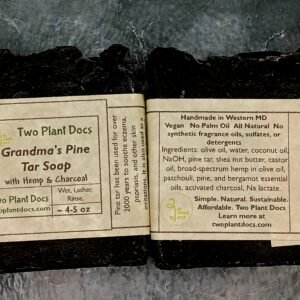 Two Plant Docs
Grandma's Pine
Tar Soap
with Hemp & Charcoal
Wet, Lather,
Rinse,
Two Plant Docs
twoplantdocs.com
~ 4-5 oz
Pine tar has been used for over
2000 years to soothe eczema,
psoriasis, and other skin
irritations. It is also used as a
Handmade in Western MD
Vegan No Palm Oil All Natural No
synthetic fragrance oils, sulfates, or
detergents
Ingredients: olive oil, water, coconut oil,
NaOH, pine tar, shea nut butter, castor
oil, broad-spectrum hemp in olive oil,
patchouli, pine, and bergamot essential
oils, activated charcoal, Na lactate.
Simple. Natural. Sustainable.
Affordable. Two Plant Docs
Learn more at
twoplantdocs.com